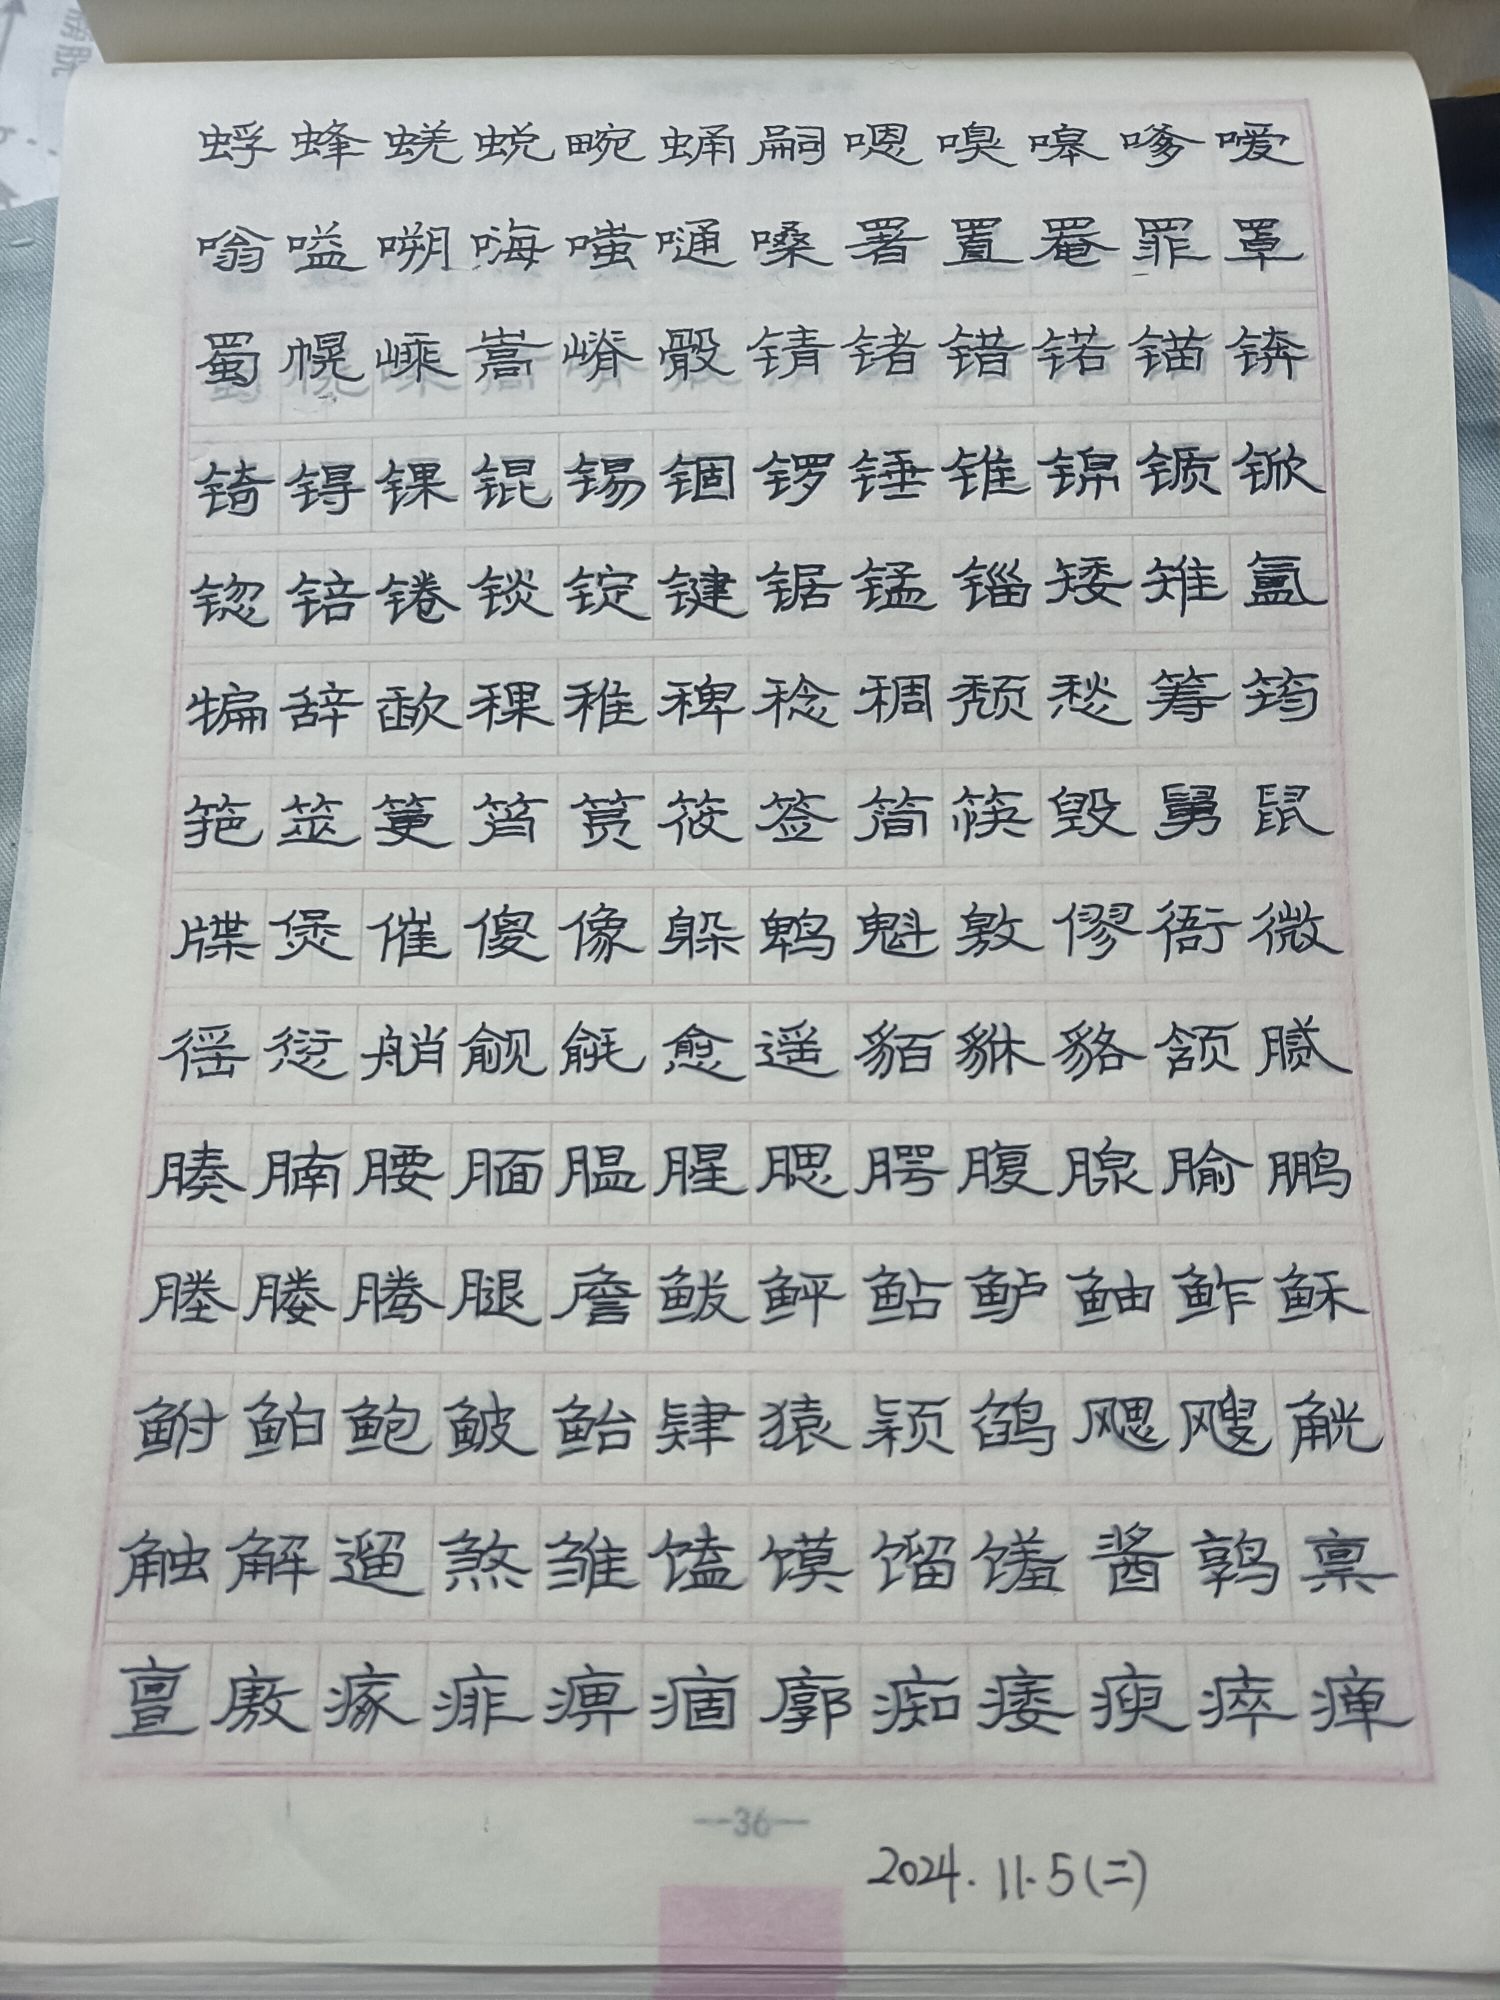 蜉蜂蜣蜕畹蛹嗣嗯嗅嗥嗲嗳
嗡嗌嗍嗨嗤嗵嗓署置罨罪罩
蜀幌嵊嵩嵴骰锖锗错锘锚锛
锜锝锞锟锡锢锣锤锥锦锧锨
锪锫锩锬锭键锯锰锱矮雉氲
犏辞歃稞稚稗稔稠颓愁筹筠
筢筮筻筲筼筱签简筷毁舅鼠
牒煲催傻像躲鹎魁敫僇衙微
徭愆艄觎毹愈遥貊貅貉颔腻
腠腩腰腼腽腥腮腭腹腺腧鹏
塍媵腾腿詹鲅鲆鲇鲈鲉鲊稣
鲋鲌鲍鲏鲐肆猿颖鹐飔飕觥
触解遛煞雏馌馍馏馐酱鹑禀
亶廒瘃痱痹痼廓痴痿瘐瘁瘅
—36—
2024.11.5(二)